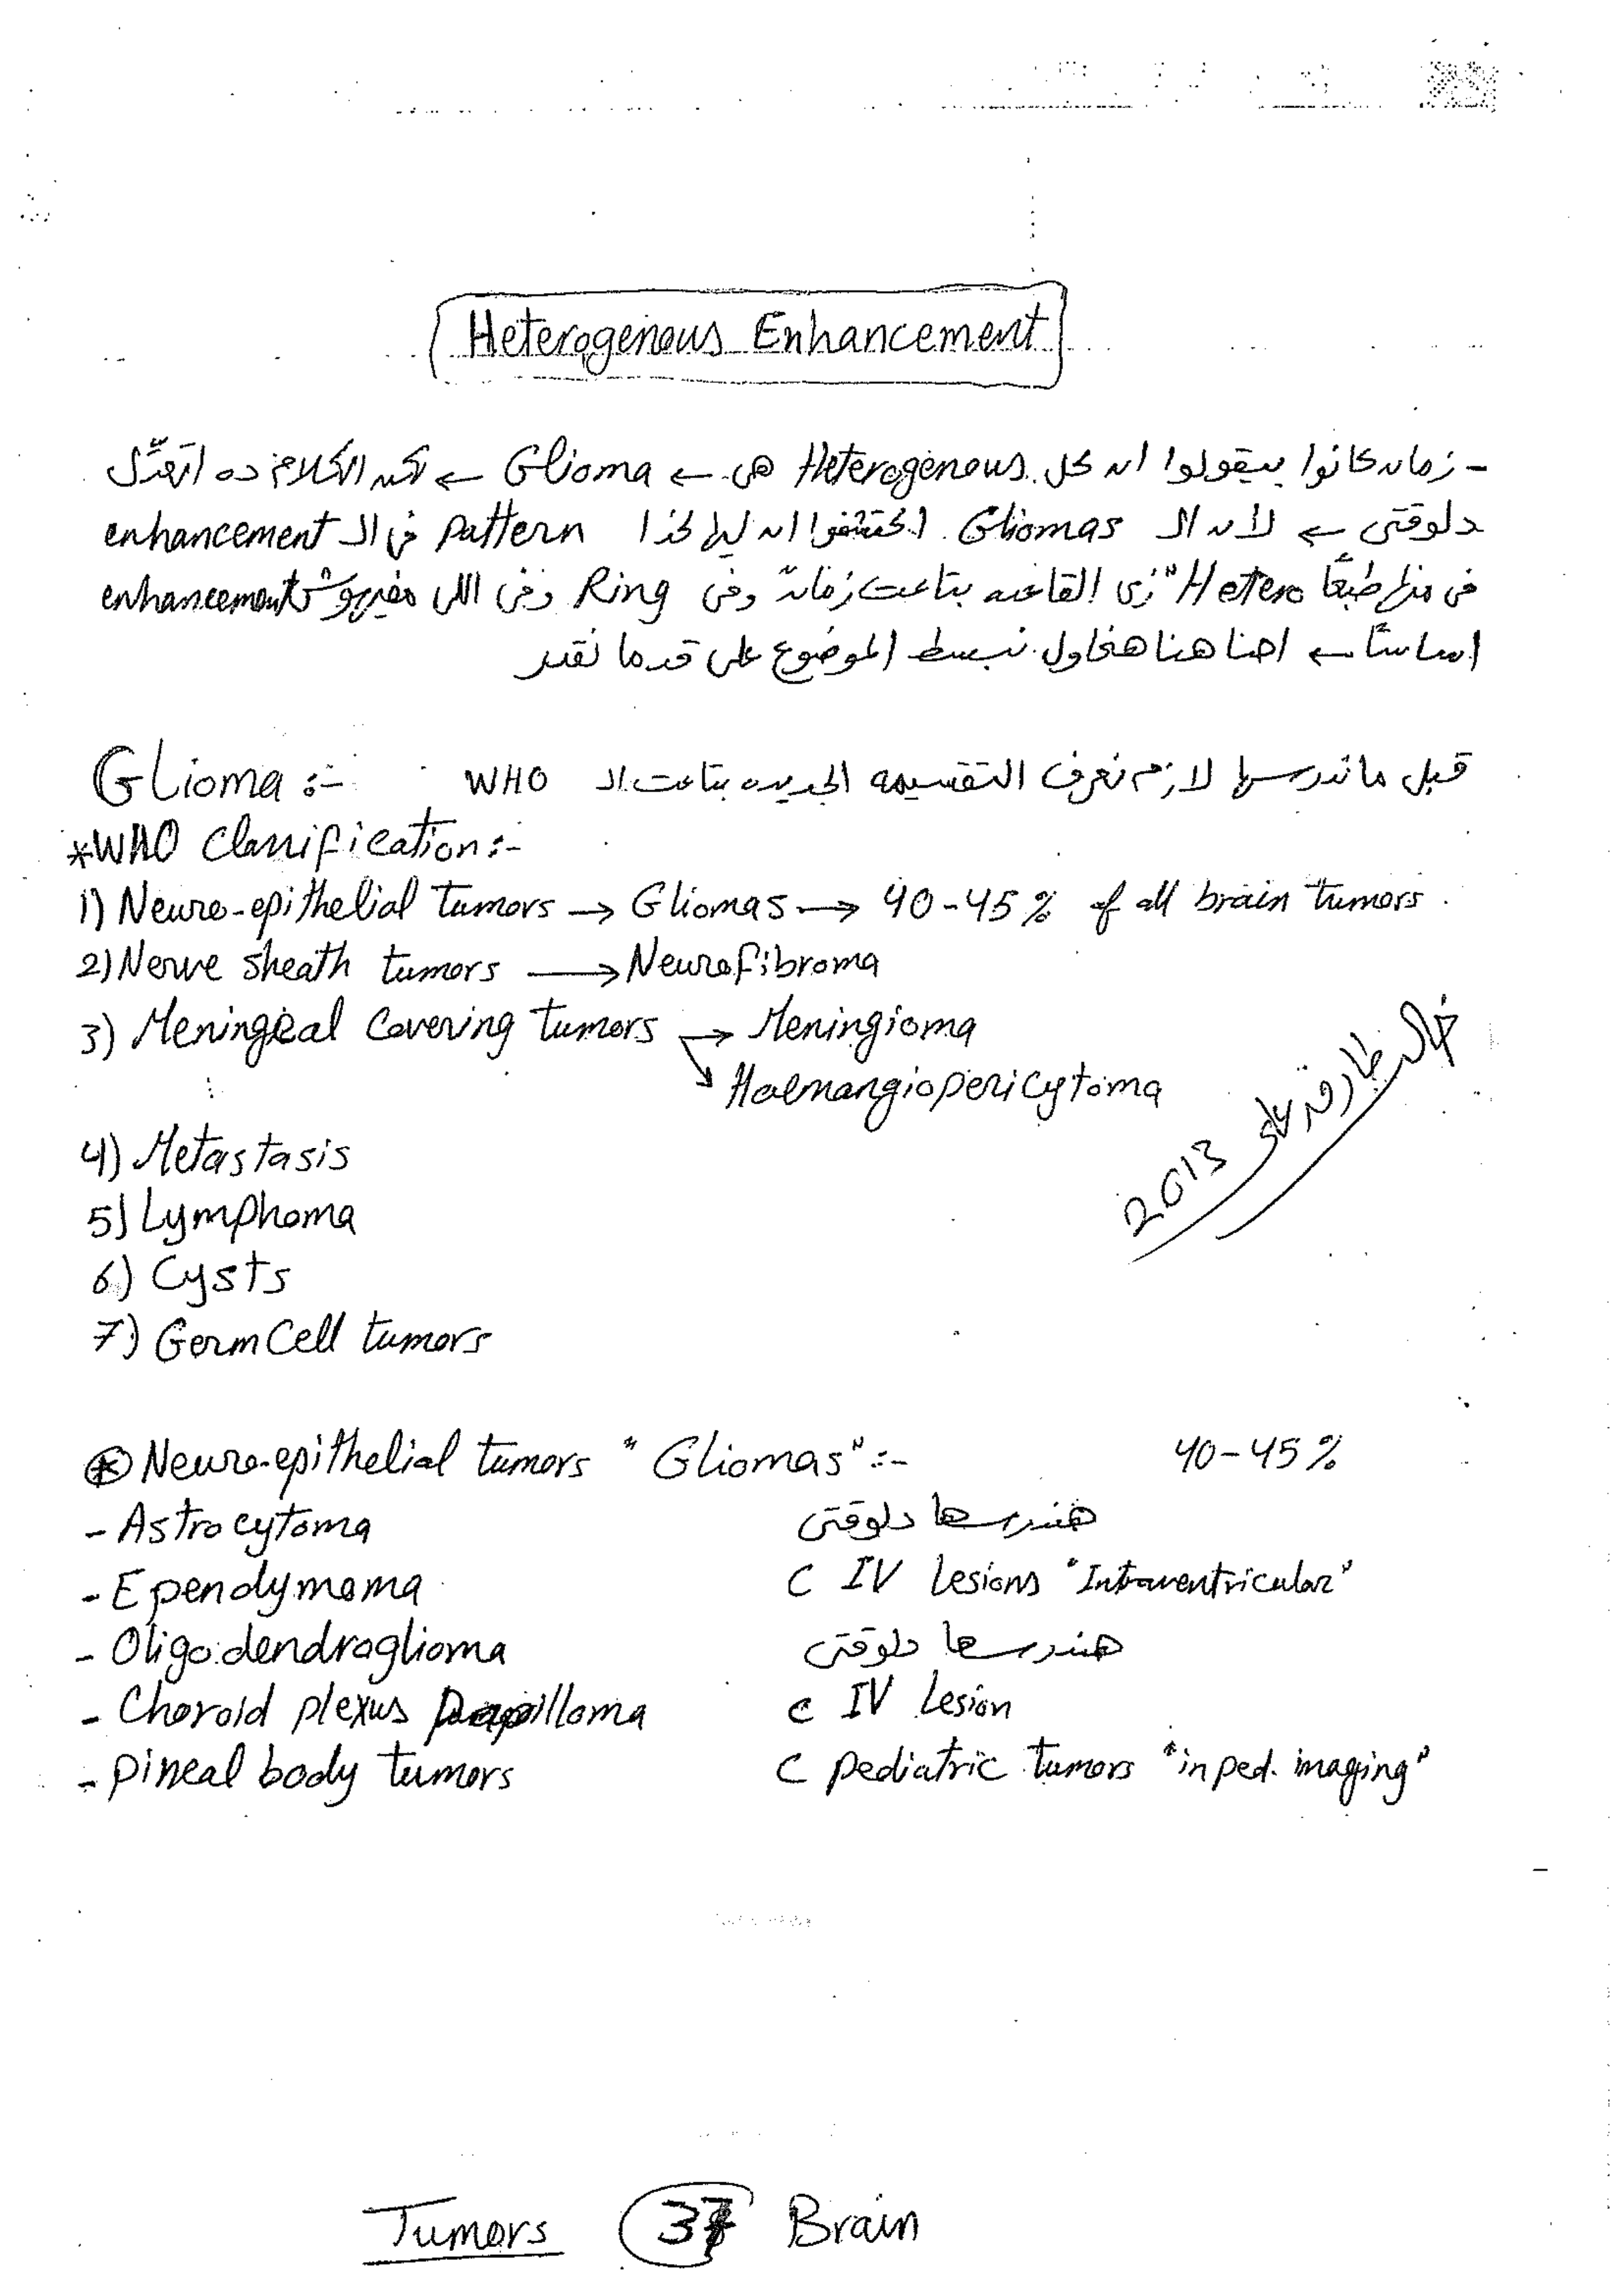 Heterogenous Enhancement
- زمان كانوا بيقولوا ان كل Heterogenous هى ← Glioma ← لكن الكلام ده اتعدّل
دلوقتى ← لأن الـ Gliomas اكتشفوا ان ليها كذا Pattern فى الـ enhancement
فى منها طبعًا Hetero "زى القاعده بتاعت زمان" وفى Ring وفى اللى مفيهوش enhancement
اساسًا ← احنا هنا هنحاول نبسط الموضوع على قد ما نقدر
Glioma :- قبل ما ندرسها لازم نعرف التقسيمه الجديده بتاعت الـ WHO
*WHO Classification :-
1) Neuro-epithelial tumors → Gliomas → 40-45% of all brain tumors.
2) Nerve sheath tumors → Neurofibroma
3) Meningeal Covering tumors → Meningioma
↘ Haemangiopericytoma
4) Metastasis
5) Lymphoma
6) Cysts
7) Germ Cell tumors
2013
* Neuro-epithelial tumors "Gliomas" :- 40-45%
- Astrocytoma هندرسها دلوقتى
- Ependymoma C IV Lesions "Intraventricular"
- Oligodendroglioma هندرسها دلوقتى
- Choroid plexus Papilloma C IV Lesion
- pineal body tumors C pediatric tumors "in ped. imaging"
Tumors 37 Brain